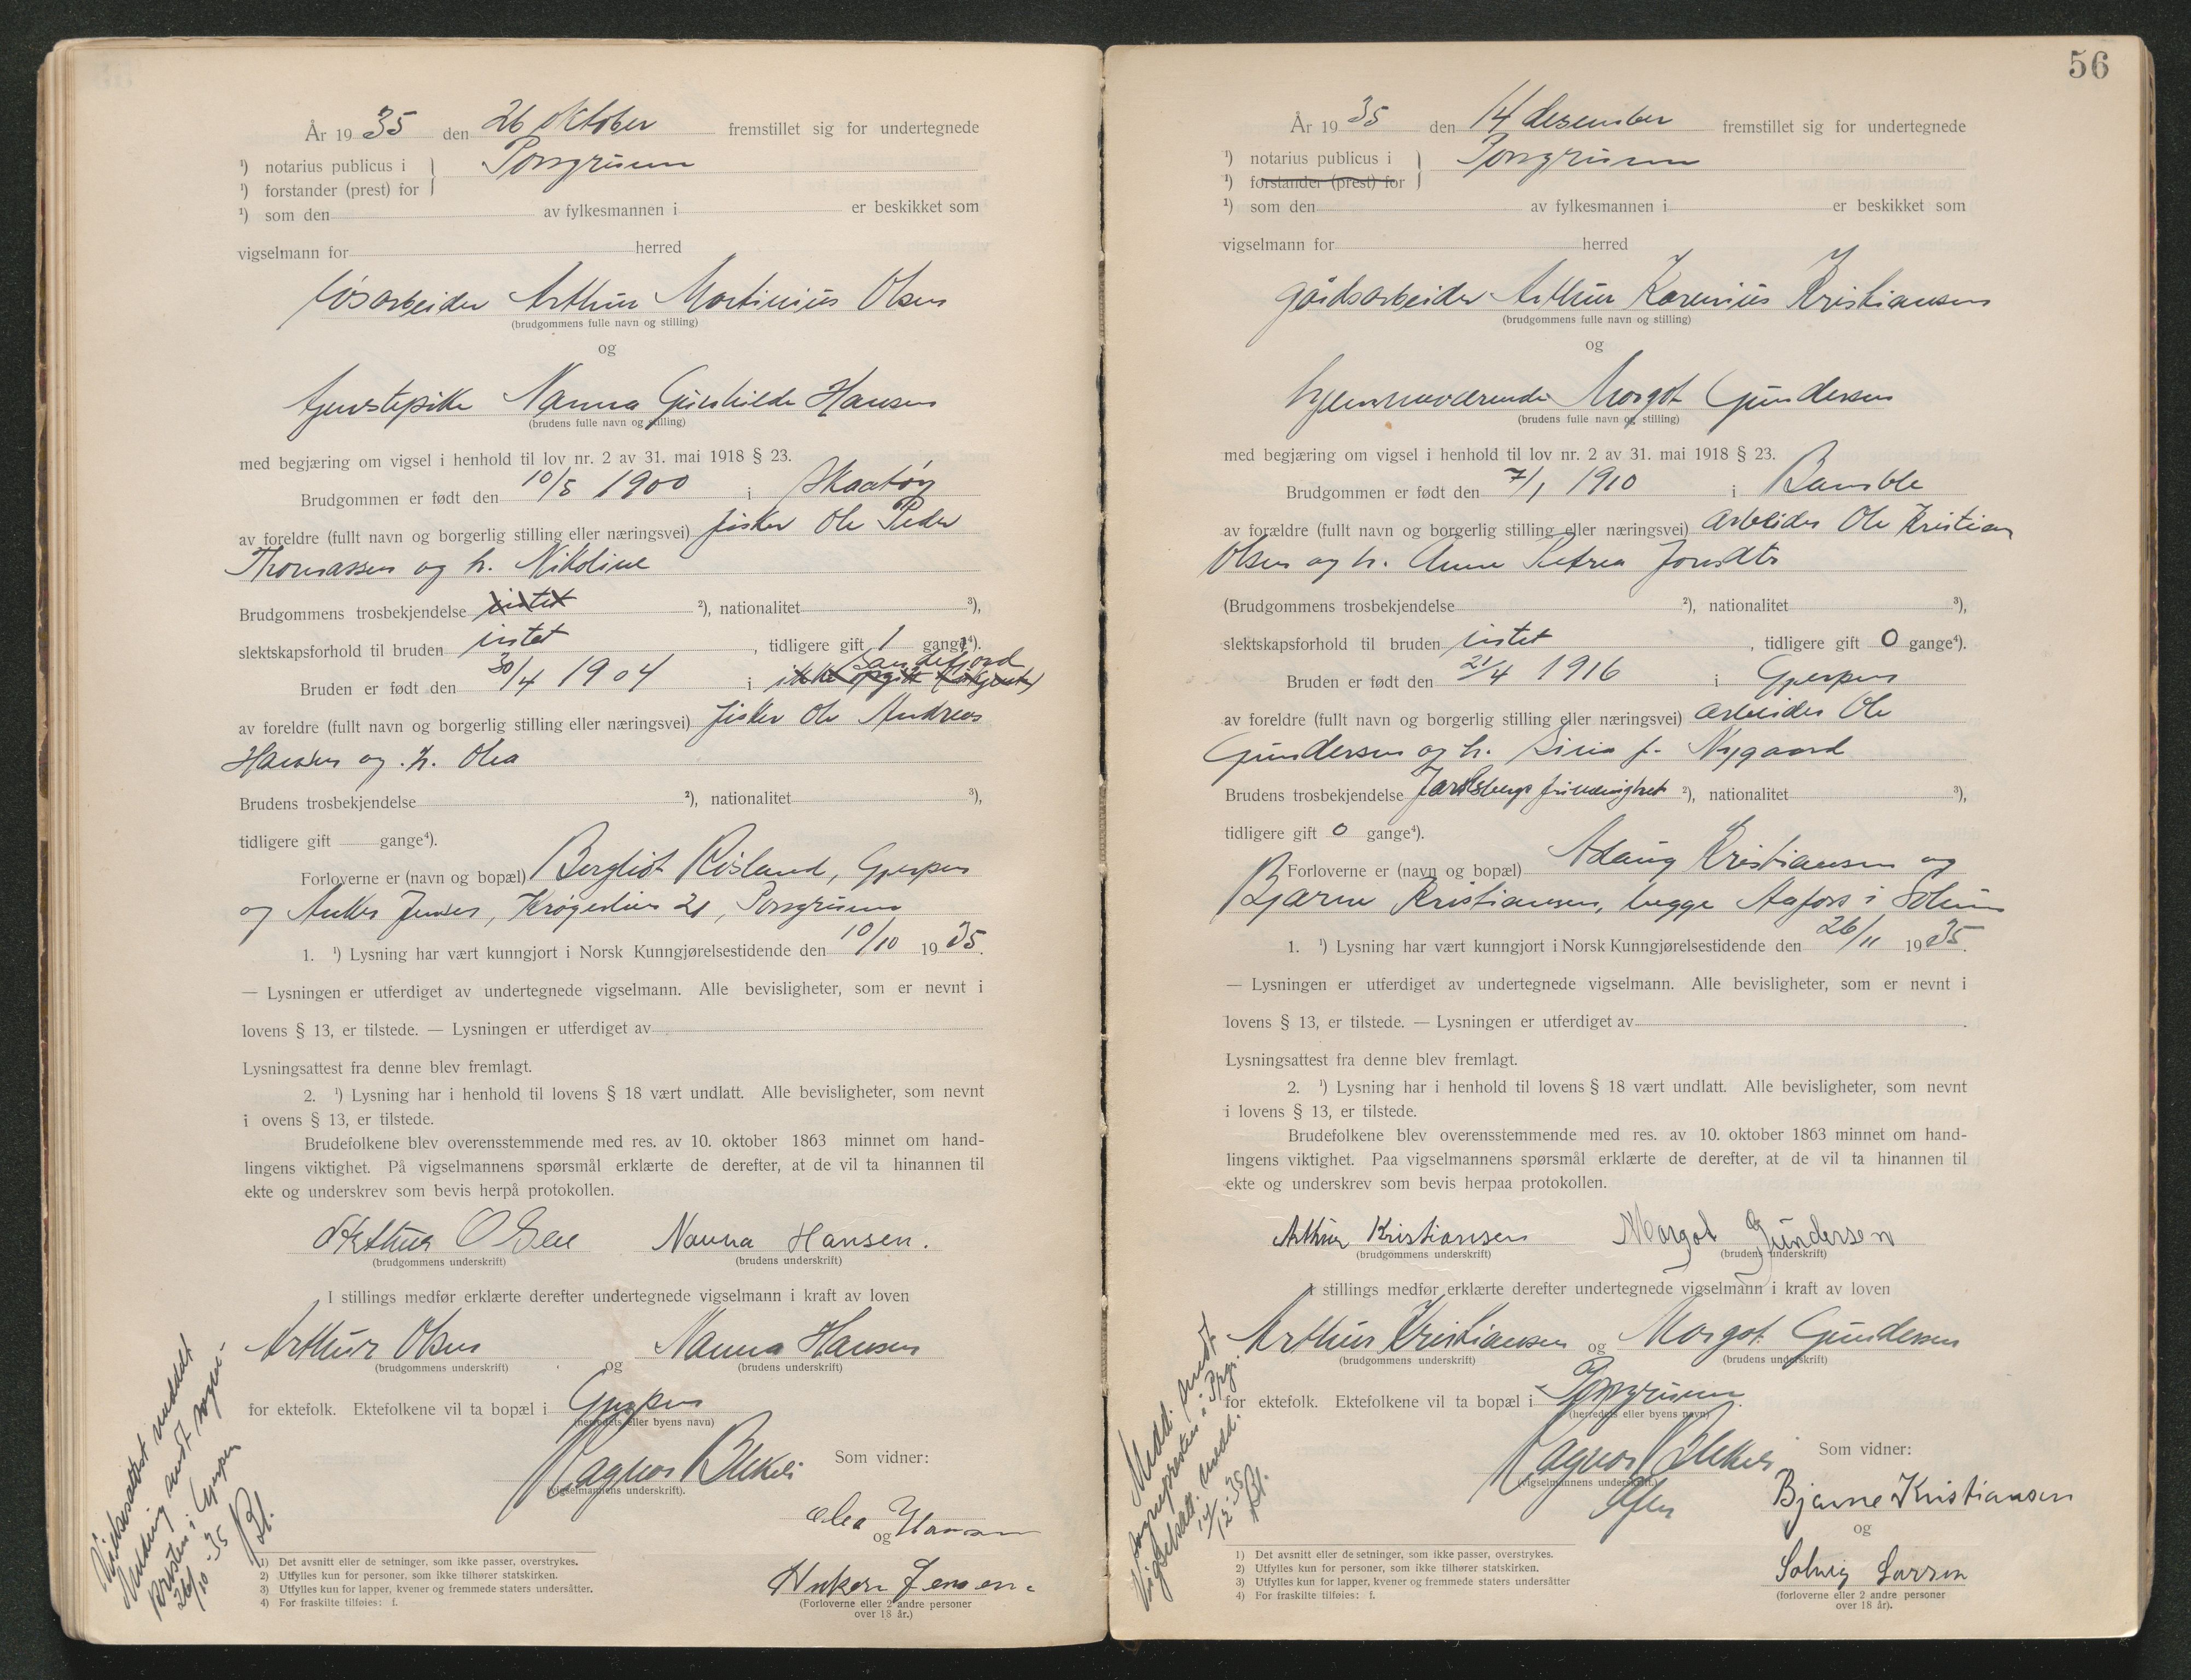 År 1935 den 26 oktober fremstillet sig for undertegnede
¹) notarius publicus i } Porsgrunn
¹) forstander (prest) for
¹) som den av fylkesmannen i er beskikket som
vigselmann for herred
løsarbeider Arthur Martinius Olsen
(brudgommens fulle navn og stilling)
og
tjenestepike Nanna Gunhilde Hansen
(brudens fulle navn og stilling)
med begjæring om vigsel i henhold til lov nr. 2 av 31. mai 1918 § 23.
Brudgommen er født den 10/5 1900 i Skaatøy
av foreldre (fullt navn og borgerlig stilling eller næringsvei) fisker Ole Peder
Thomassen og h. Nikoline
Brudgommens trosbekjendelse intet ²), nationalitet ³),
slektskapsforhold til bruden intet, tidligere gift 1 gange⁴).
Sandefjord
Bruden er født den 30/4 1904 i ikke opgitt
av foreldre (fullt navn og borgerlig stilling eller næringsvei) fisker Ole Andreas
Hansen og h. Olea
Brudens trosbekjendelse ²), nationalitet ³),
tidligere gift gange⁴).
Forloverne er (navn og bopæl) Bergliot Risland, Gjerpen
og Anker Jensen, Krøgerlien 21, Porsgrunn
1. ¹) Lysning har vært kunngjort i Norsk Kunngjørelsestidende den 10/10 1935.
— Lysningen er utferdiget av undertegnede vigselmann. Alle bevisligheter, som er nevnt i
lovens § 13, er tilstede. — Lysningen er utferdiget av
Lysningsattest fra denne blev fremlagt.
2. ¹) Lysning har i henhold til lovens § 18 vært undlatt. Alle bevisligheter, som nevnt
i ovens § 13, er tilstede.
Brudefolkene blev overensstemmende med res. av 10. oktober 1863 minnet om hand-
lingens viktighet. På vigselmannens spørsmål erklærte de derefter, at de vil ta hinannen til
ekte og underskrev som bevis herpå protokollen.
Arthur Olsen Nanna Hansen.
(brudgommens underskrift) (brudens underskrift)
I stillings medfør erklærte derefter undertegnede vigselmann i kraft av loven
Arthur Olsen og Nanna Hansen
(brudgommens underskrift) (brudens underskrift)
for ektefolk. Ektefolkene vil ta bopæl i Gjerpen
(herredets eller byens navn)
Ragnar Blekeli Som vidner:
(vigselmannens underskrift).
Olea Hansen
og
Anker Jensen
(Forloverne eller 2 andre personer
over 18 år.)
Vielsesattest meddelt
Melding sendt sogne-
presten i Gjerpen
26/10-35 Bl.
1) Det avsnitt eller de setninger, som ikke passer, overstrykes.
2) Utfylles kun for personer, som ikke tilhører statskirken.
3) Utfylles kun for lapper, kvener og fremmede staters undersåtter.
4) For fraskilte tilføies: f.
56
År 1935 den 14 desember fremstillet sig for undertegnede
¹) notarius publicus i } Porsgrunn
¹) forstander (prest) for
¹) som den av fylkesmannen i er beskikket som
vigselmann for herred
gårdsarbeider Arthur Karenius Kristiansen
(brudgommens fulle navn og stilling)
og
hjemmeværende Margot Gundersen
(brudens fulle navn og stilling)
med begjæring om vigsel i henhold til lov nr. 2 av 31. mai 1918 § 23.
Brudgommen er født den 7/1 1910 i Bamble
av forældre (fullt navn og borgerlig stilling eller næringsvei) arbeider Ole Kristian
Olsen og h. Anne Petrea Jonsdtr
(Brudgommens trosbekjendelse ²), nationalitet ³),
slektskapsforhold til bruden intet, tidligere gift 0 gange⁴).
Bruden er født den 21/4 1916 i Gjerpen
av foreldre (fullt navn og borgerlig stilling eller næringsvei) arbeider Ole
Gundersen og h. Sina f. Nygaard
Brudens trosbekjendelse Jarlsberg frimenighet ²), nationalitet ³),
tidligere gift 0 gange⁴).
Forloverne er (navn og bopæl) Adang Kristiansen og
Bjarne Kristiansen, begge Aafoss i Solum
1. ¹) Lysning har vært kunngjort i Norsk Kunngjørelsestidende den 26/11 1935.
— Lysningen er utferdiget av undertegnede vigselmann. Alle bevisligheter, som er nevnt i
lovens § 13, er tilstede. — Lysningen er utferdiget av
Lysningsattest fra denne blev fremlagt.
2. ¹) Lysning har i henhold til lovens § 18 vært undlatt. Alle bevisligheter, som nevnt
i lovens § 13, er tilstede.
Brudefolkene blev overensstemmende med res. av 10. oktober 1863 minnet om hand-
lingens viktighet. Paa vigselmannens spørsmål erklærte de derefter, at de vil ta hinannen til
ekte og underskrev som bevis herpaa protokollen.
Arthur Kristiansen Margot Gundersen
(brudgommens underskrift) (brudens underskrift)
I stillings medfør erklærte derefter undertegnede vigselmann i kraft av loven
Arthur Kristiansen og Margot Gundersen
(brudgommens underskrift) (brudens underskrift)
for ektefolk. Ektefolkene vil ta bopæl i Porsgrunn
(herredets eller byens navn)
Ragnar Blekeli Som vidner:
(vigselmannens underskrift).
Bjarne Kristiansen
og
Solveig Larsen
(forloverne eller 2 andre personer
over 18 år).
Medd. sendt
sognepresten i Prgr.
Vigselsatt. medd.
14/12-35 Bl.
1) Det avsnitt eller de setninger, som ikke passer, overstrykes.
2) Utfylles kun for personer, som ikke tilhører statskirken.
3) Utfylles kun for lapper, kvener og fremmede staters undersåtter
4) For fraskilte tilføies: f.